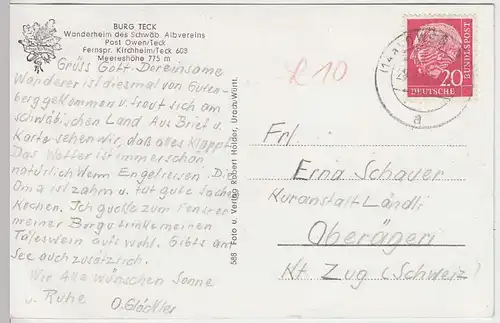 BURG TECK
Wanderheim des Schwäb. Albvereins
Post Owen/Teck
Fernspr. Kirchheim/Teck 603
Meereshöhe 775 m
Grüss Gott. Der einsame
Wanderer ist diesmal von Guten-
berg gekommen u. freut sich am
schwäbischen Land Aus Brief u.
Karte sehen wir, daß alles klappt
Das Wetter ist immer schön
natürlich Wenn Engel reisen. Di
Oma ist zahm u. tut gute Sachen
kochen. Ich gucke zum Fenster
meiner Burg u. trinke meinen
wohl. Gibts am
See auch zusätzlich.
Wir Alle wünschen Sonne
u. Ruhe
588 Foto u. Verlag Robert Holder, Urach/Württ.
R 10
20
DEUTSCHE
BUNDESPOST
a
Frl.
Erna Schauer
Kuranstalt Ländli
Oberägeri
Kt. Zug (Schweiz)